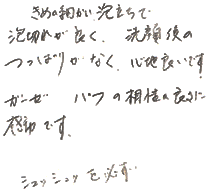 きめの細かい泡立ちで
泡切れが良く、洗顔後の
つっぱりがなく、心地良いです
ガーゼ パフの相性の良さに
感動です。
シュッシュッを必ず